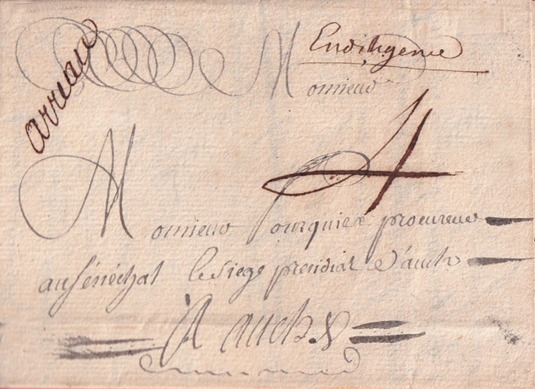 arreau
En diligence
Monsieur
4
Monsieur fourquier procureur
au sénéchal le siege presidial d'auch
A auch